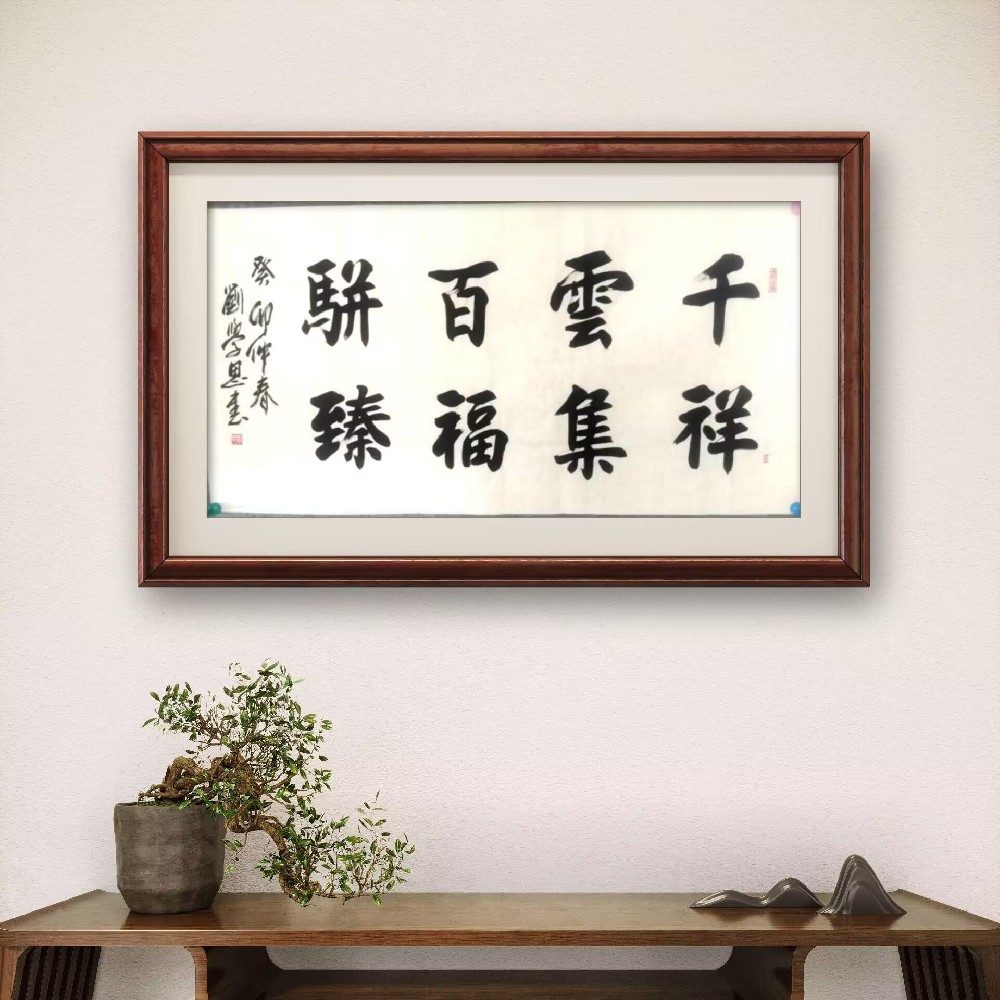 千祥
雲集
百福
駢臻
癸卯仲春
劉學恩書